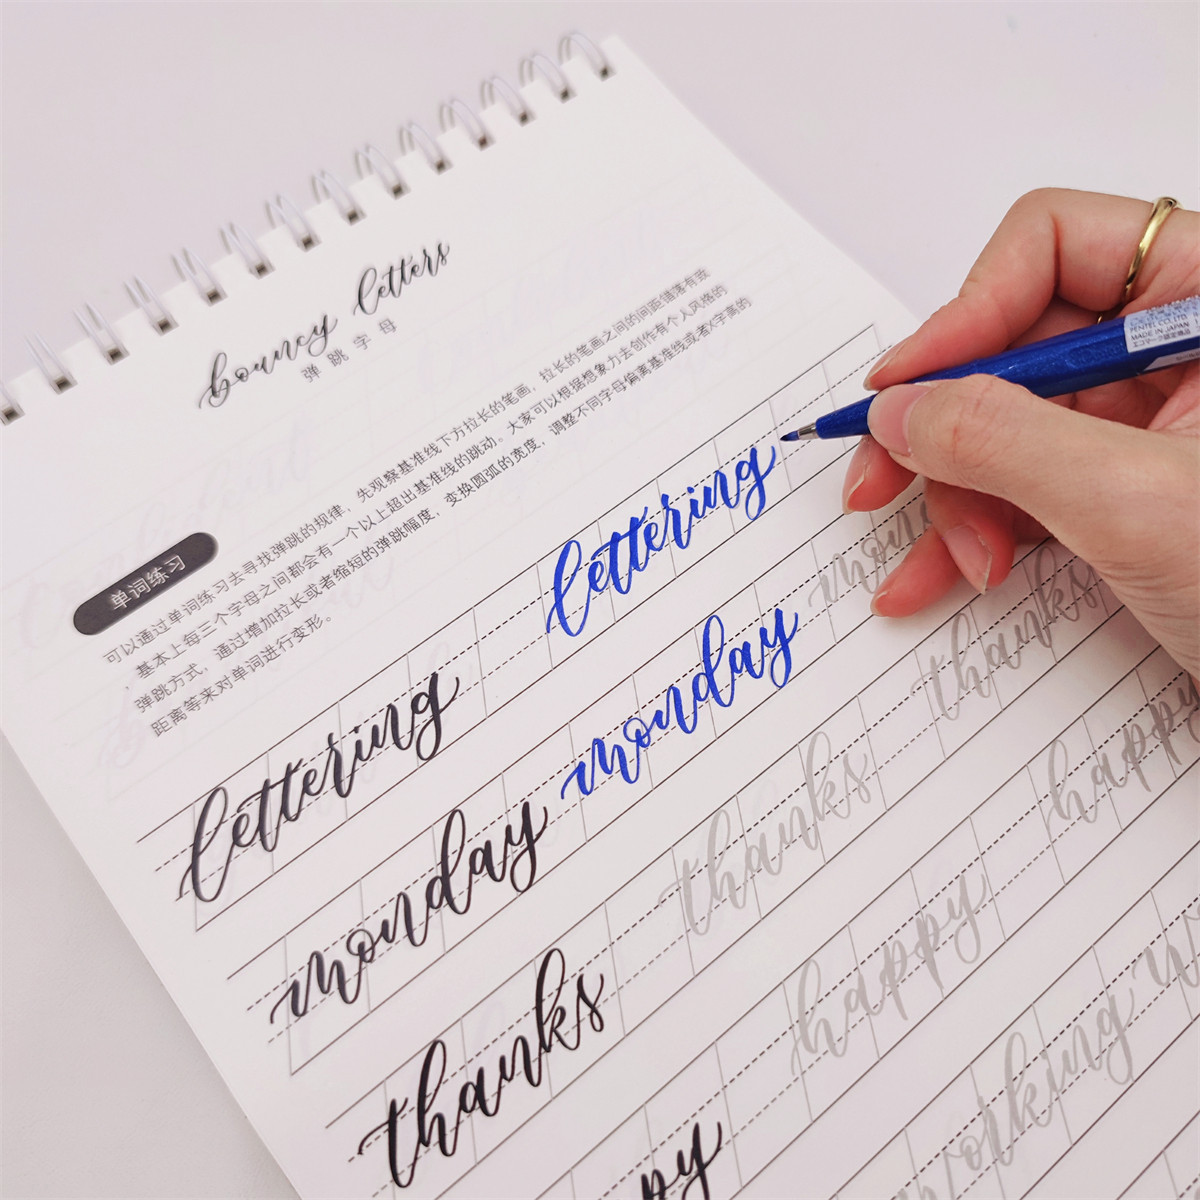 bouncy letters
弹跳字母
单词练习
可以通过单词练习去寻找弹跳的规律，先观察基准线下方拉长的笔画，拉长的笔画之间的间距错落有致
基本上每三个字母之间都会有一个以上超出基准线的跳动。大家可以根据想象力去创作有个人风格的
弹跳方式，通过增加拉长或者缩短的弹跳幅度，变换圆弧的宽度，调整不同字母偏离基准线或者X字高的
距离等来对单词进行变形。
lettering lettering
monday monday mon
thanks thanks thanks
py happy happy
working w
PENTEL CO.,LTD.
MADE IN JAPAN
エコマーク認定商品